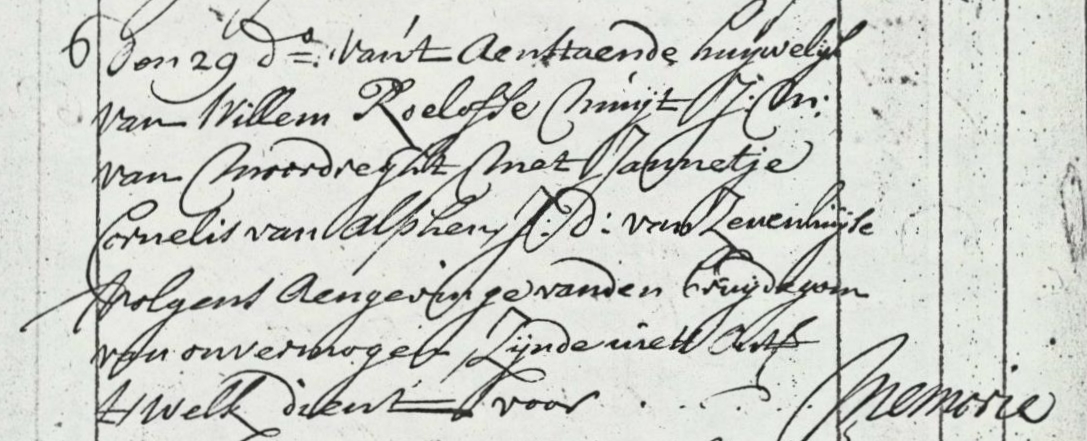 6 Den 29 do. van't Aenstaende huywelijk
van Willem Roelofse Muijt J: M:
van Moordreght Met Jannetje
Cornelis van Alphen J: D: van Zevenhuijse
volgens Aengevinge vanden Bruijdegom
van onvermogen Zijnde
't Welk dient voor . . . . Memorie